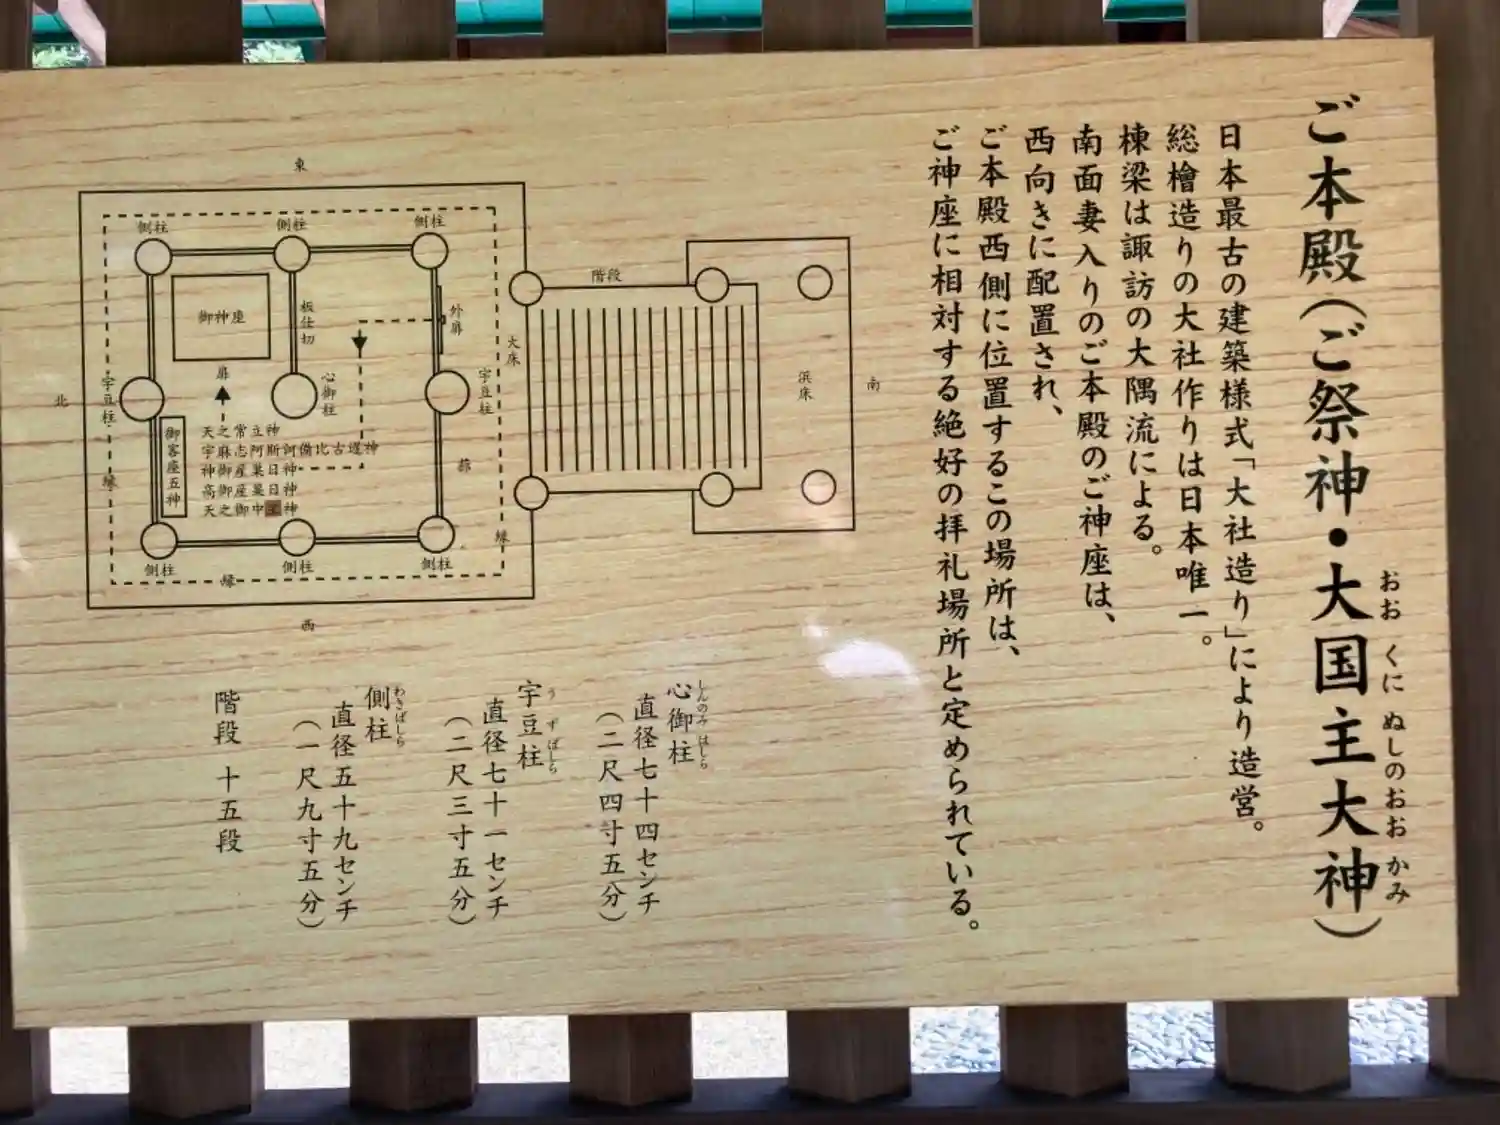 ご本殿(ご祭神・大国主大神)
おおくにぬしのおおかみ
日本最古の建築様式「大社造り」により造営。
総檜造りの大社作りは日本唯一。
棟梁は諏訪の大隅流による。
南面妻入りのご本殿のご神座は、
西向きに配置され、
ご本殿西側に位置するこの場所は、
ご神座に相対する絶好の拝礼場所と定められている。
心御柱
しんのみはしら
直径七十四センチ
(二尺四寸五分)
宇豆柱
うずばしら
直径七十一センチ
(二尺三寸五分)
側柱
わきばしら
直径五十九センチ
(一尺九寸五分)
階段 十五段
東
側柱
側柱
側柱
御神座
板仕切
外扉
階段
大床
浜床
南
北
宇豆柱
扉
心御柱
宇豆柱
御客座五神
天之常立神
宇麻志阿斯訶備比古遅神
神御産巣日神
高御産巣日神
天之御中主神
蔀
縁
縁
縁
側柱
側柱
側柱
西